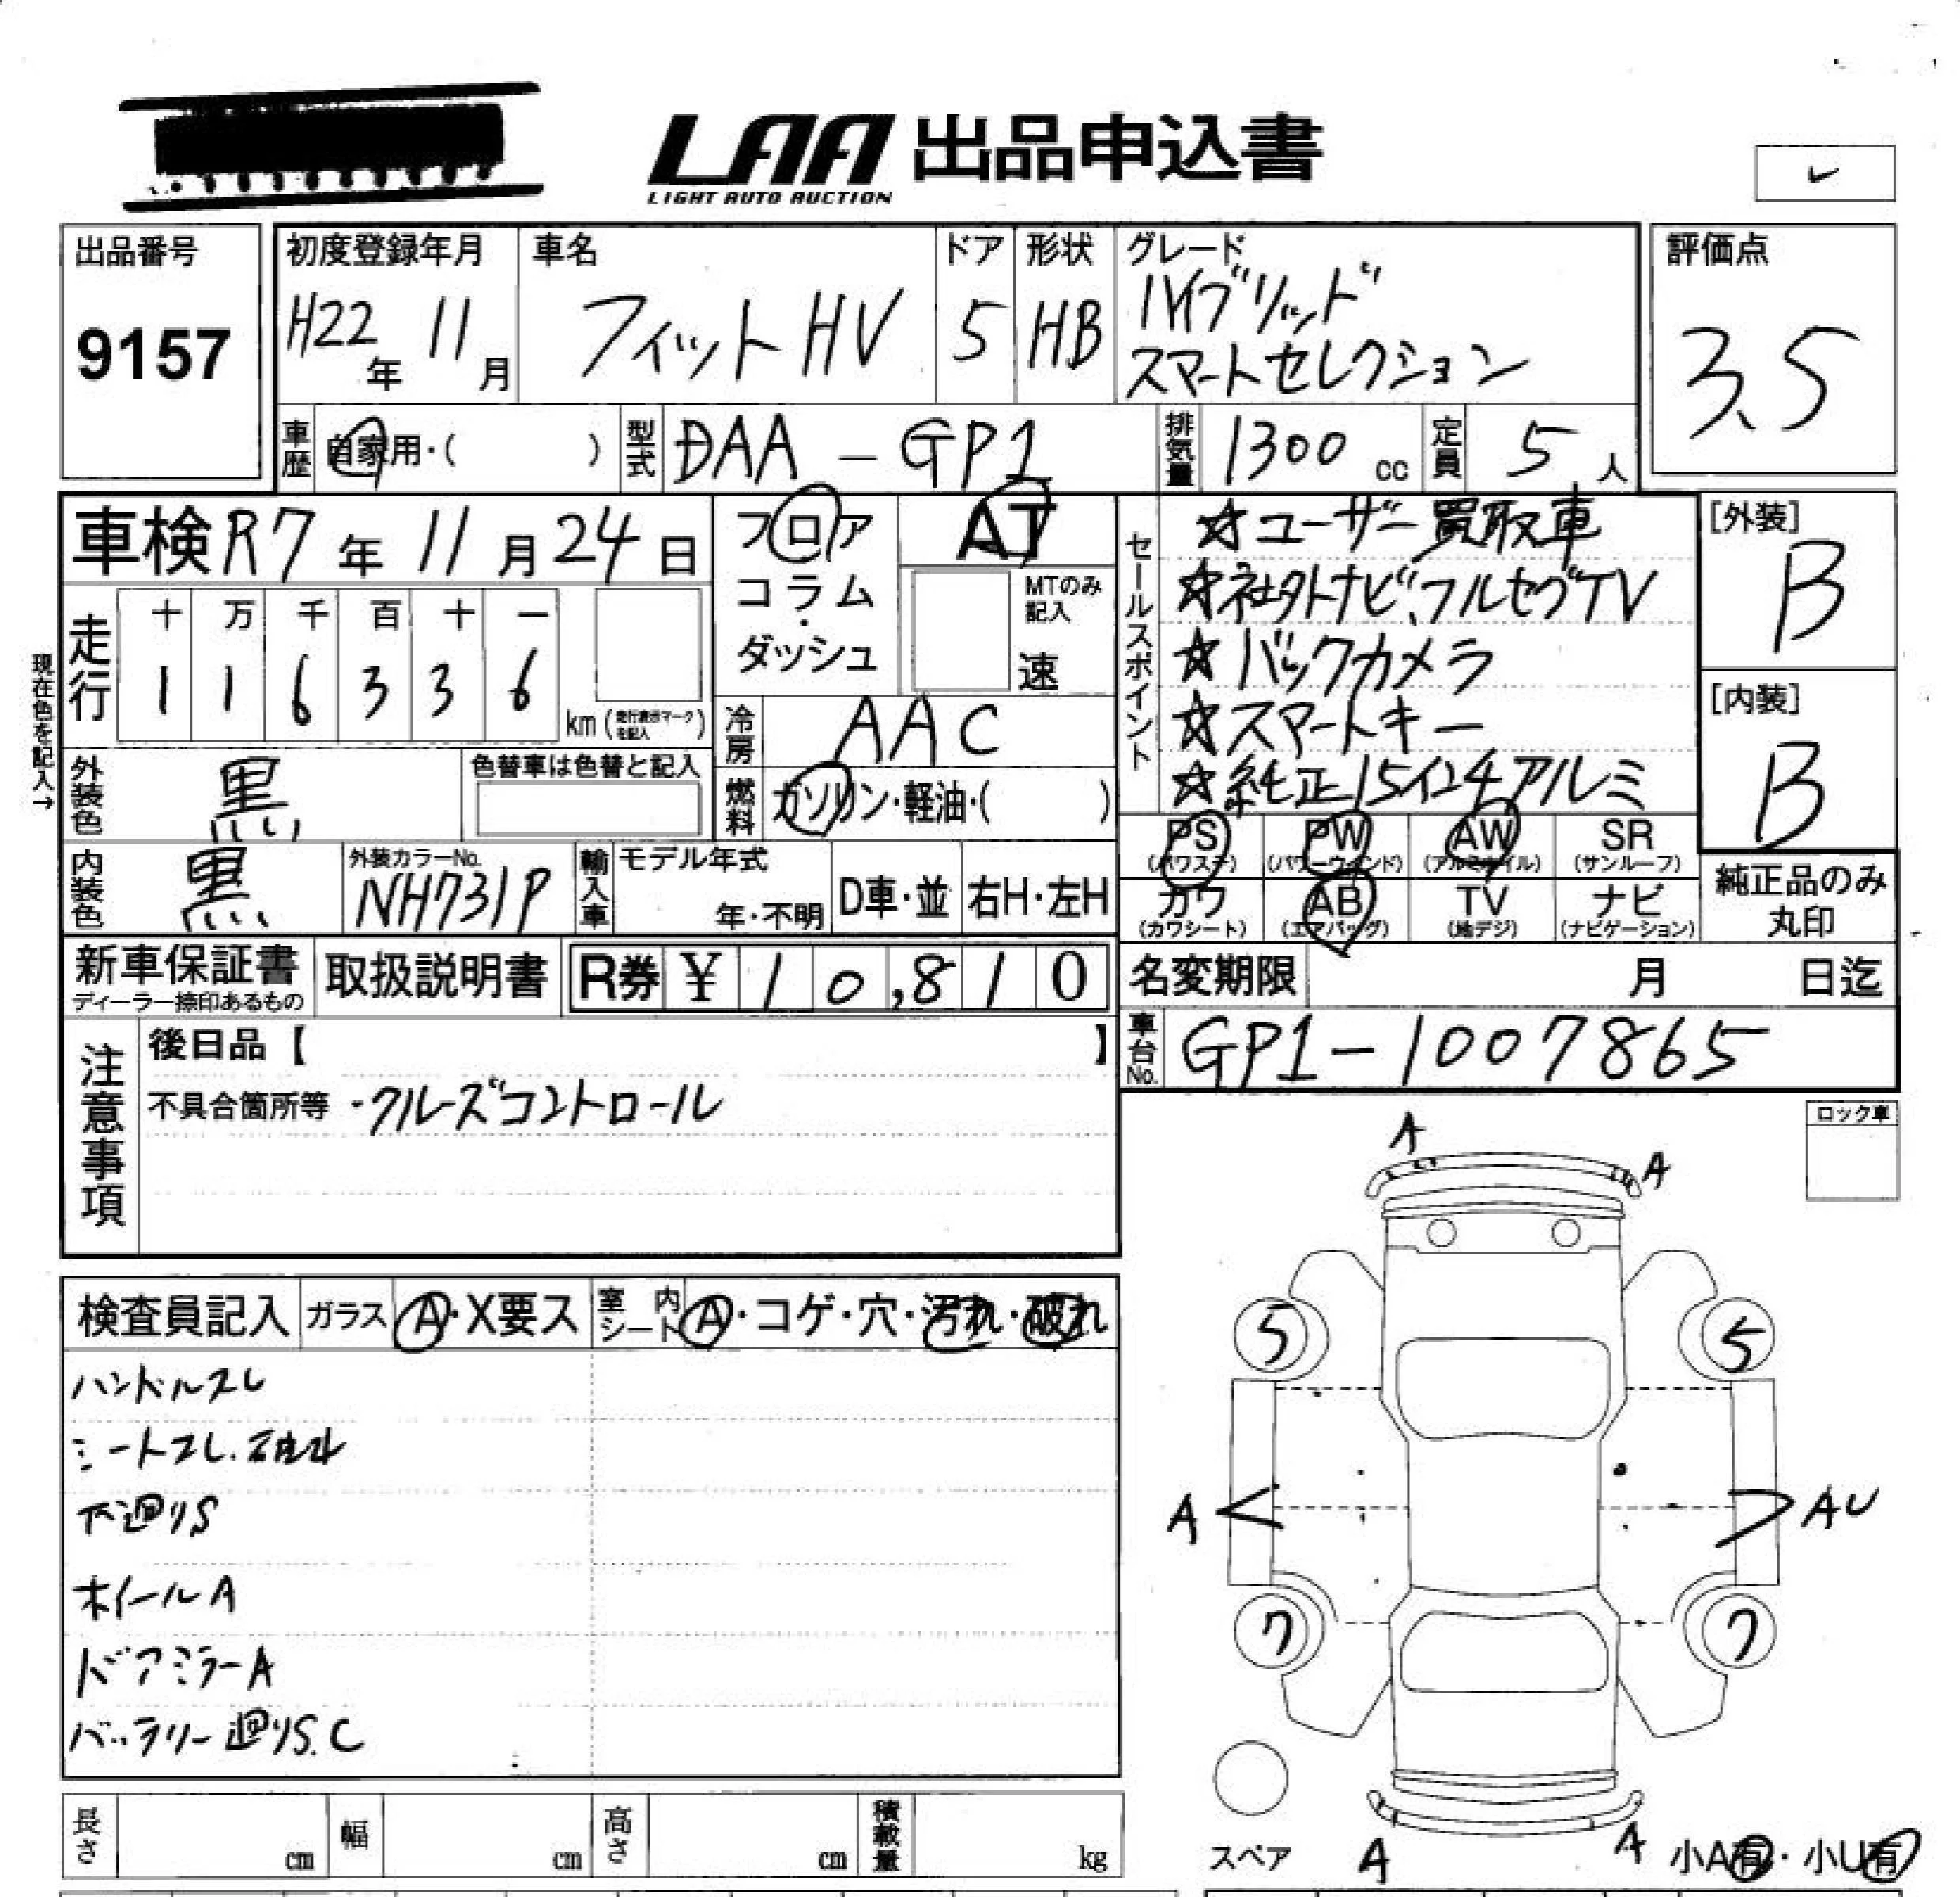 LAA 出品申込書
LIGHT AUTO AUCTION
出品番号
9157
初度登録年月
H22年 11月
車名
フィットHV
ドア
5
形状
HB
グレード
ハイブリッド
スマートセレクション
評価点
3.5
車歴 自家用・( )
型式 DAA-GP1
排気量 1300 cc
定員 5 人
車検 R7年 11月 24日
現在色を記入→
走行
十 万 千 百 十 一
1 1 6 3 3 6
km (走行表示マークを記入)
フロア
コラム
・
ダッシュ
AT
MTのみ記入
速
冷房 AAC
燃料 ガソリン・軽油・( )
外装色 黒
色替車は色替と記入
内装色 黒
外装カラーNo.
NH731P
輸入車
モデル年式
年・不明
D車・並
右H・左H
セールスポイント
☆ユーザー買取車
☆社外ナビ、フルセグTV
☆バックカメラ
☆スマートキー
☆純正15インチアルミ
[外装]
B
[内装]
B
PS
(パワステ)
PW
(パワーウィンド)
AW
(アルミホイル)
SR
(サンルーフ)
カワ
(カワシート)
AB
(エアバッグ)
TV
(地デジ)
ナビ
(ナビゲーション)
純正品のみ
丸印
新車保証書
ディーラー捺印あるもの
取扱説明書
R券 ¥ 10,810
名変期限 月 日迄
車台No. GP1-1007865
注意事項
後日品【 】
不具合箇所等 ・クルーズコントロール
ロック車
検査員記入
ガラス A・X要ス
室内シート A・コゲ・穴・汚れ・破れ
ハンドルスレ
シートスレ.破れ
下廻りS
ホイールA
ドアミラーA
バッテリー廻りS.C
A
A
5
5
A
AU
7
7
スペア
A
A
小A有・小U有
長さ cm
幅 cm
高さ cm
積載量 kg